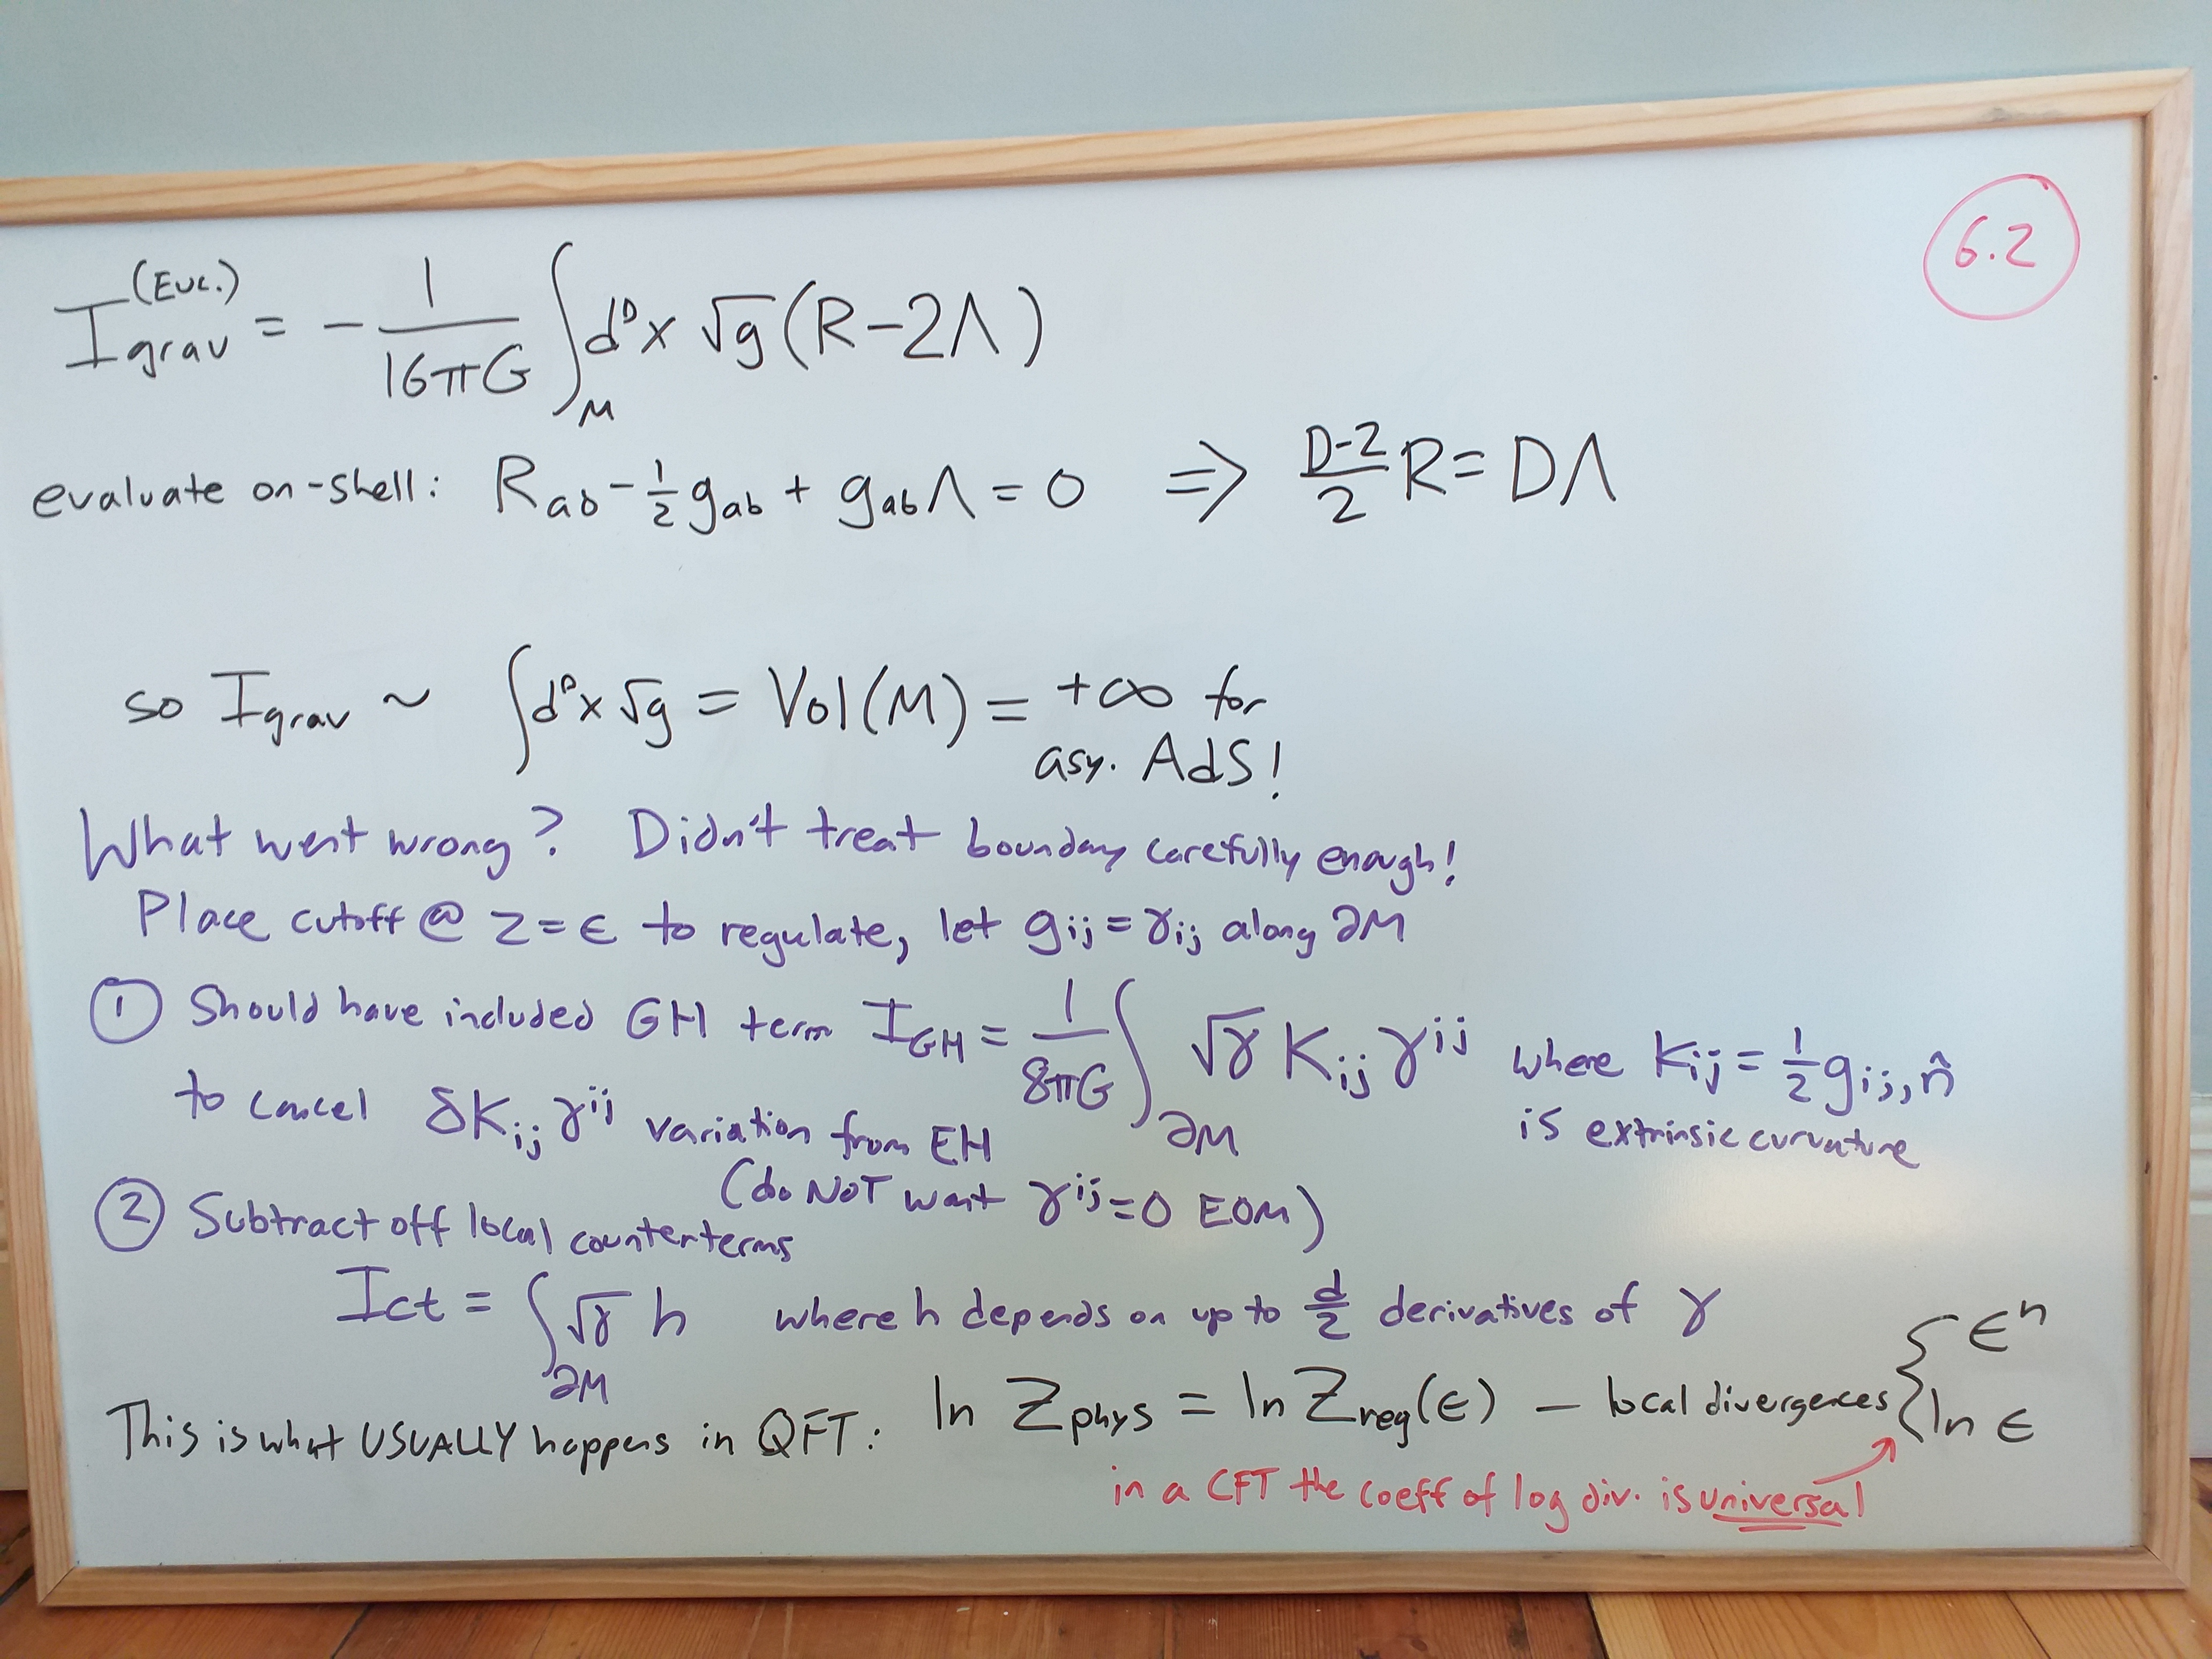 6.2
I_grav^(Euc.) = - 1/16πG ∫_M d^Dx √g (R-2Λ)
evaluate on-shell: R_ab - 1/2 g_ab + g_ab Λ = 0 ⇒ D-2/2 R = DΛ
so I_grav ~ ∫d^Dx √g = Vol(M) = +∞ for
asy. AdS!
What went wrong? Didn't treat boundary carefully enough!
Place cutoff @ z=ϵ to regulate, let g_ij = γ_ij along ∂M
① Should have included GH term I_GH = 1/8πG ∫_∂M √γ K_ij γ^ij where K_ij = 1/2 g_ij,n̂
to cancel δK_ij γ^ij variation from EH
is extrinsic curvature
(do NOT want γ^ij = 0 EOM)
② Subtract off local counterterms
I_ct = ∫_∂M √γ h where h depends on up to d/2 derivatives of γ
This is what USUALLY happens in QFT: ln Z_phys = ln Z_reg(ϵ) - local divergences { ϵ^n
ln ϵ
in a CFT the coeff of log div. is universal